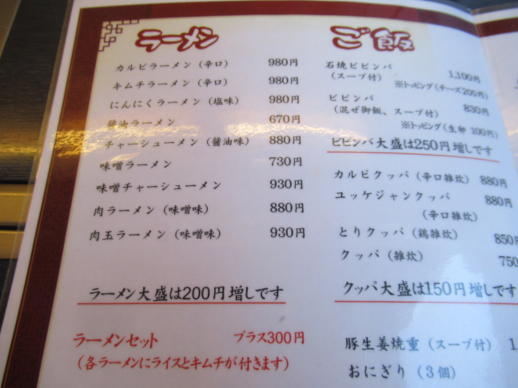 ラーメン
カルビラーメン（辛口） 980円
キムチラーメン（辛口） 980円
にんにくラーメン（塩味） 980円
醤油ラーメン 670円
チャーシューメン（醤油味） 880円
味噌ラーメン 730円
味噌チャーシューメン 930円
肉ラーメン（味噌味） 880円
肉玉ラーメン（味噌味） 930円
ラーメン大盛は200円増しです
ラーメンセット プラス300円
（各ラーメンにライスとキムチが付きます）
ご飯
石焼ビビンバ
（スープ付） 1,100円
※トッピング（チーズ200円）
ビビンバ 830円
（混ぜ御飯、スープ付）
※トッピング（生卵 100円）
ビビンバ大盛は250円増しです
カルビクッパ（辛口雑炊） 880円
ユッケジャンクッパ 880円
（辛口雑炊）
とりクッパ（鶏雑炊） 850円
クッパ（雑炊） 750
クッパ大盛は150円増しです
豚生姜焼重（スープ付）
おにぎり（３個）